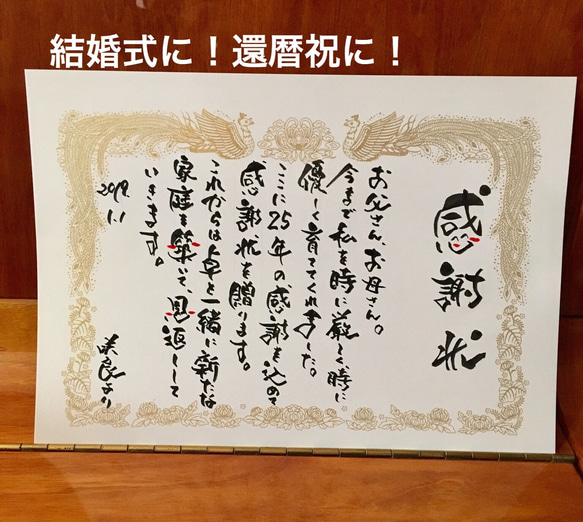 結婚式に！還暦祝に！
感謝状
お父さん、お母さん。
今まで私を時に厳しく時に
優しく育ててくれました。
ここに25年の感謝を込めて
感謝状を贈ります。
これからは卓と一緒に新たな
家庭を築いて、恩返しして
いきます。
2019.
1.1
美良より